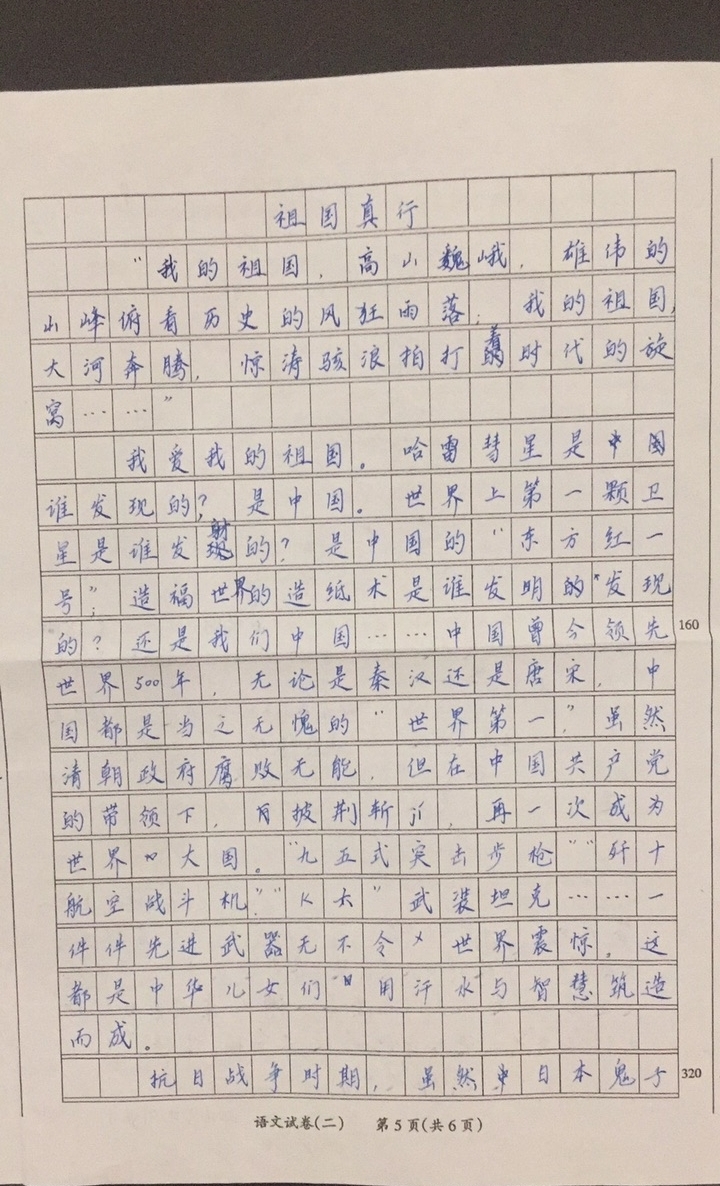 祖国真行
“我的祖国，高山巍峨，雄伟的
山峰俯看历史的风狂雨落；我的祖国，
大河奔腾，惊涛骇浪拍打着时代的旋
窝……”
我爱我的祖国。哈雷彗星是中国
谁发现的？是中国。世界上第一颗卫
星是谁发射的？是中国的“东方红一
号”；造福世界的造纸术是谁发明的发现
的？还是我们中国……中国曾今领先
世界500年，无论是秦汉还是唐宋，中
国都是当之无愧的“世界第一”，虽然
清朝政府腐败无能，但在中国共产党
的带领下，披荆斩，再一次成为
世界大国。“九五式突击步枪”“歼十
航空战斗机”“大”武装坦克……一
件件先进武器无不令世界震惊。这
都是中华儿女们用汗水与智慧筑造
而成。
抗日战争时期，虽然日本鬼子
160
320
语文试卷(二) 第5页(共6页)